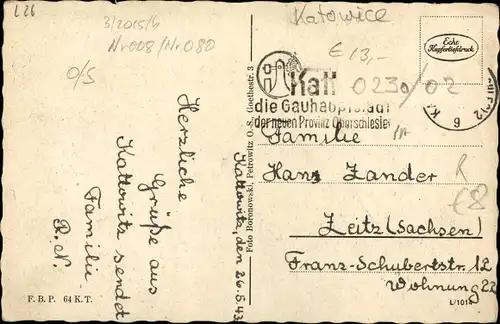 L26
3/2015/6
Nr008/Nr080
O/S
Katowice
€13,-
0230/02
Echt
Kupfertiefdruck
Katt
die Gauhauptstadt
der neuen Provinz Oberschlesien
6
Herzliche
Grüße aus
Kattowitz sendet
Familie
R. N.
Kattowitz, den 26.5.43
Foto Boronowski, Petrowitz O.-S., Goethestr. 3
Familie
Hans Zander
Zeitz (Sachsen)
Franz-Schubertstr. 12
Wohnung 22
R
€8
F. B. P. 64 K. T.
L/1018